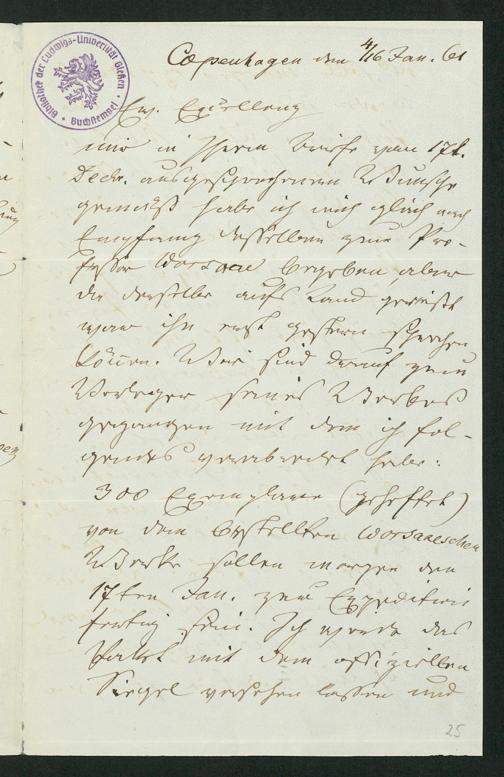 Bibliothek der Ludwigs-Universität Gießen
Buchstempel
Copenhagen den 4/16 Jan. 61
Ew. Excellenz
mir in Ihrem Briefe vom 17t.
Decbr. ausgesprochenen Wunsche
gemäß habe ich mich gleich nach
Empfang desselben zum Pro-
fessor Worsaae begeben, aber
da derselbe aufs Land gereist
war ihn erst gestern sprechen
können. Wir sind darauf zum
Verleger seines Werkes
gegangen mit dem ich fol-
gendes verabredet habe:
300 Exemplare (geheftet)
von dem bestellten Worsaaeschen
Werke sollen morgen den
17ten Jan. zur Expedition
fertig sein. Ich werde das
Paket mit dem offiziellen
Siegel versehen lassen und
25